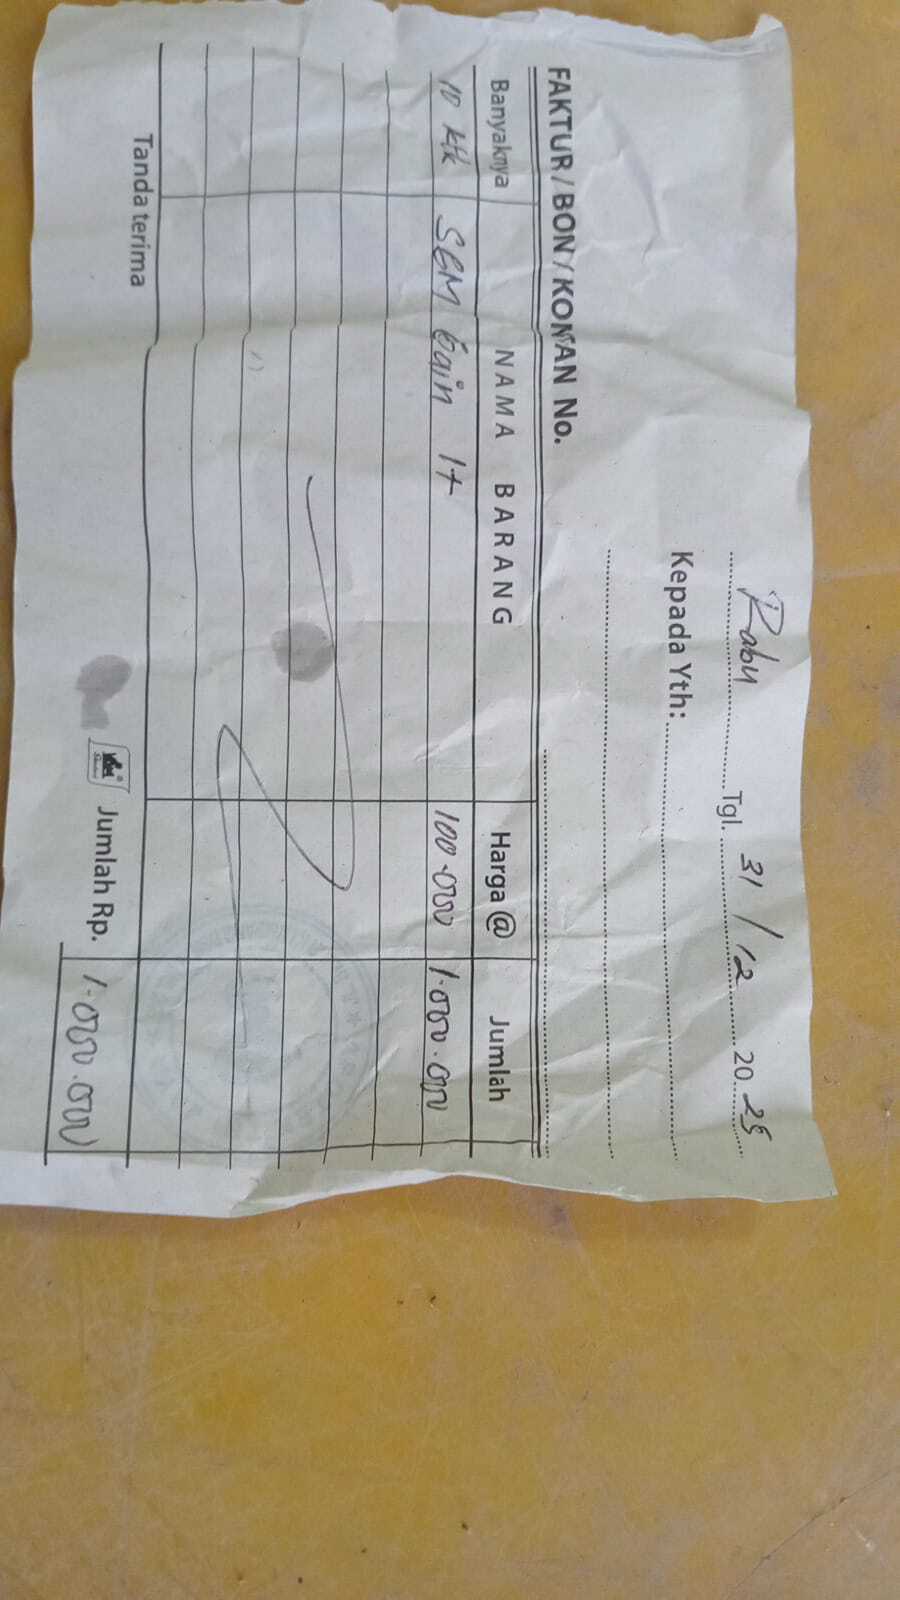 Rabu Tgl. 31/12 2025
Kepada Yth:
FAKTUR / BON / KONTAN No.
Banyaknya NAMA BARANG Harga @ Jumlah
10 ktk SGM Gain 1+ 100.000 1.000.000
Tanda terima Jumlah Rp. 1.000.000